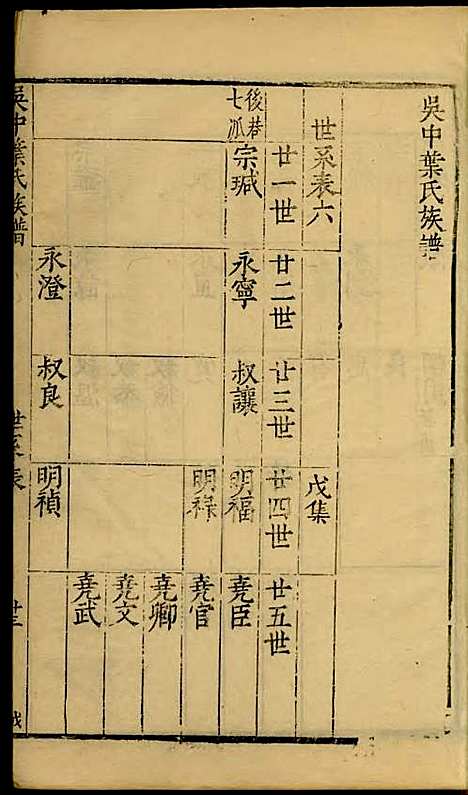 吳中葉氏族譜
世系表六
戊集
廿一世
廿二世
廿三世
廿四世
廿五世
後巷
七派
宗瑊
永寧
叔讓
明福
堯臣
明祿
堯官
堯卿
堯文
堯武
永澄
叔良
明禎
吳中葉氏族譜
世系表